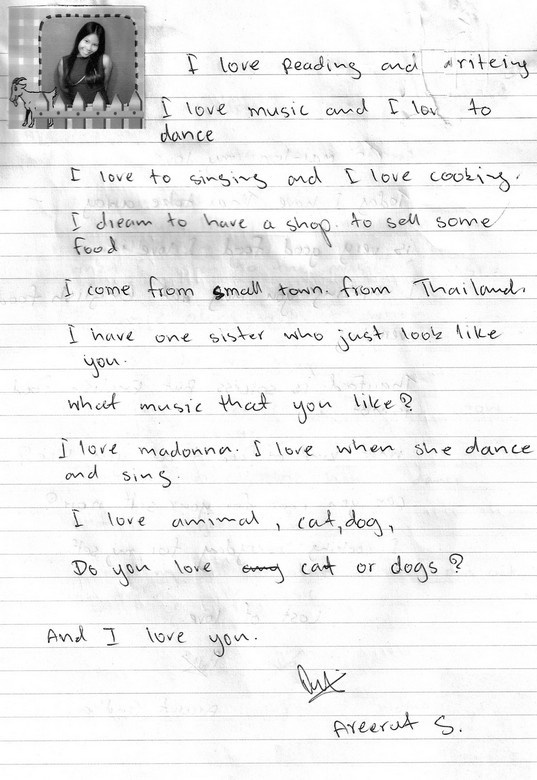 I love Reading and writeing
I love music and I lov to
dance
I love to singing and I love cooking.
I dream to have a shop. to sell some
food.
I come from small town. from Thailand.
I have one sister who just look like
you.
What music that you like?
I love madonna. I love when she dance
and sing.
I love amimal, cat, dog,
Do you love cat or dogs?
And I love you.
Areerat S.